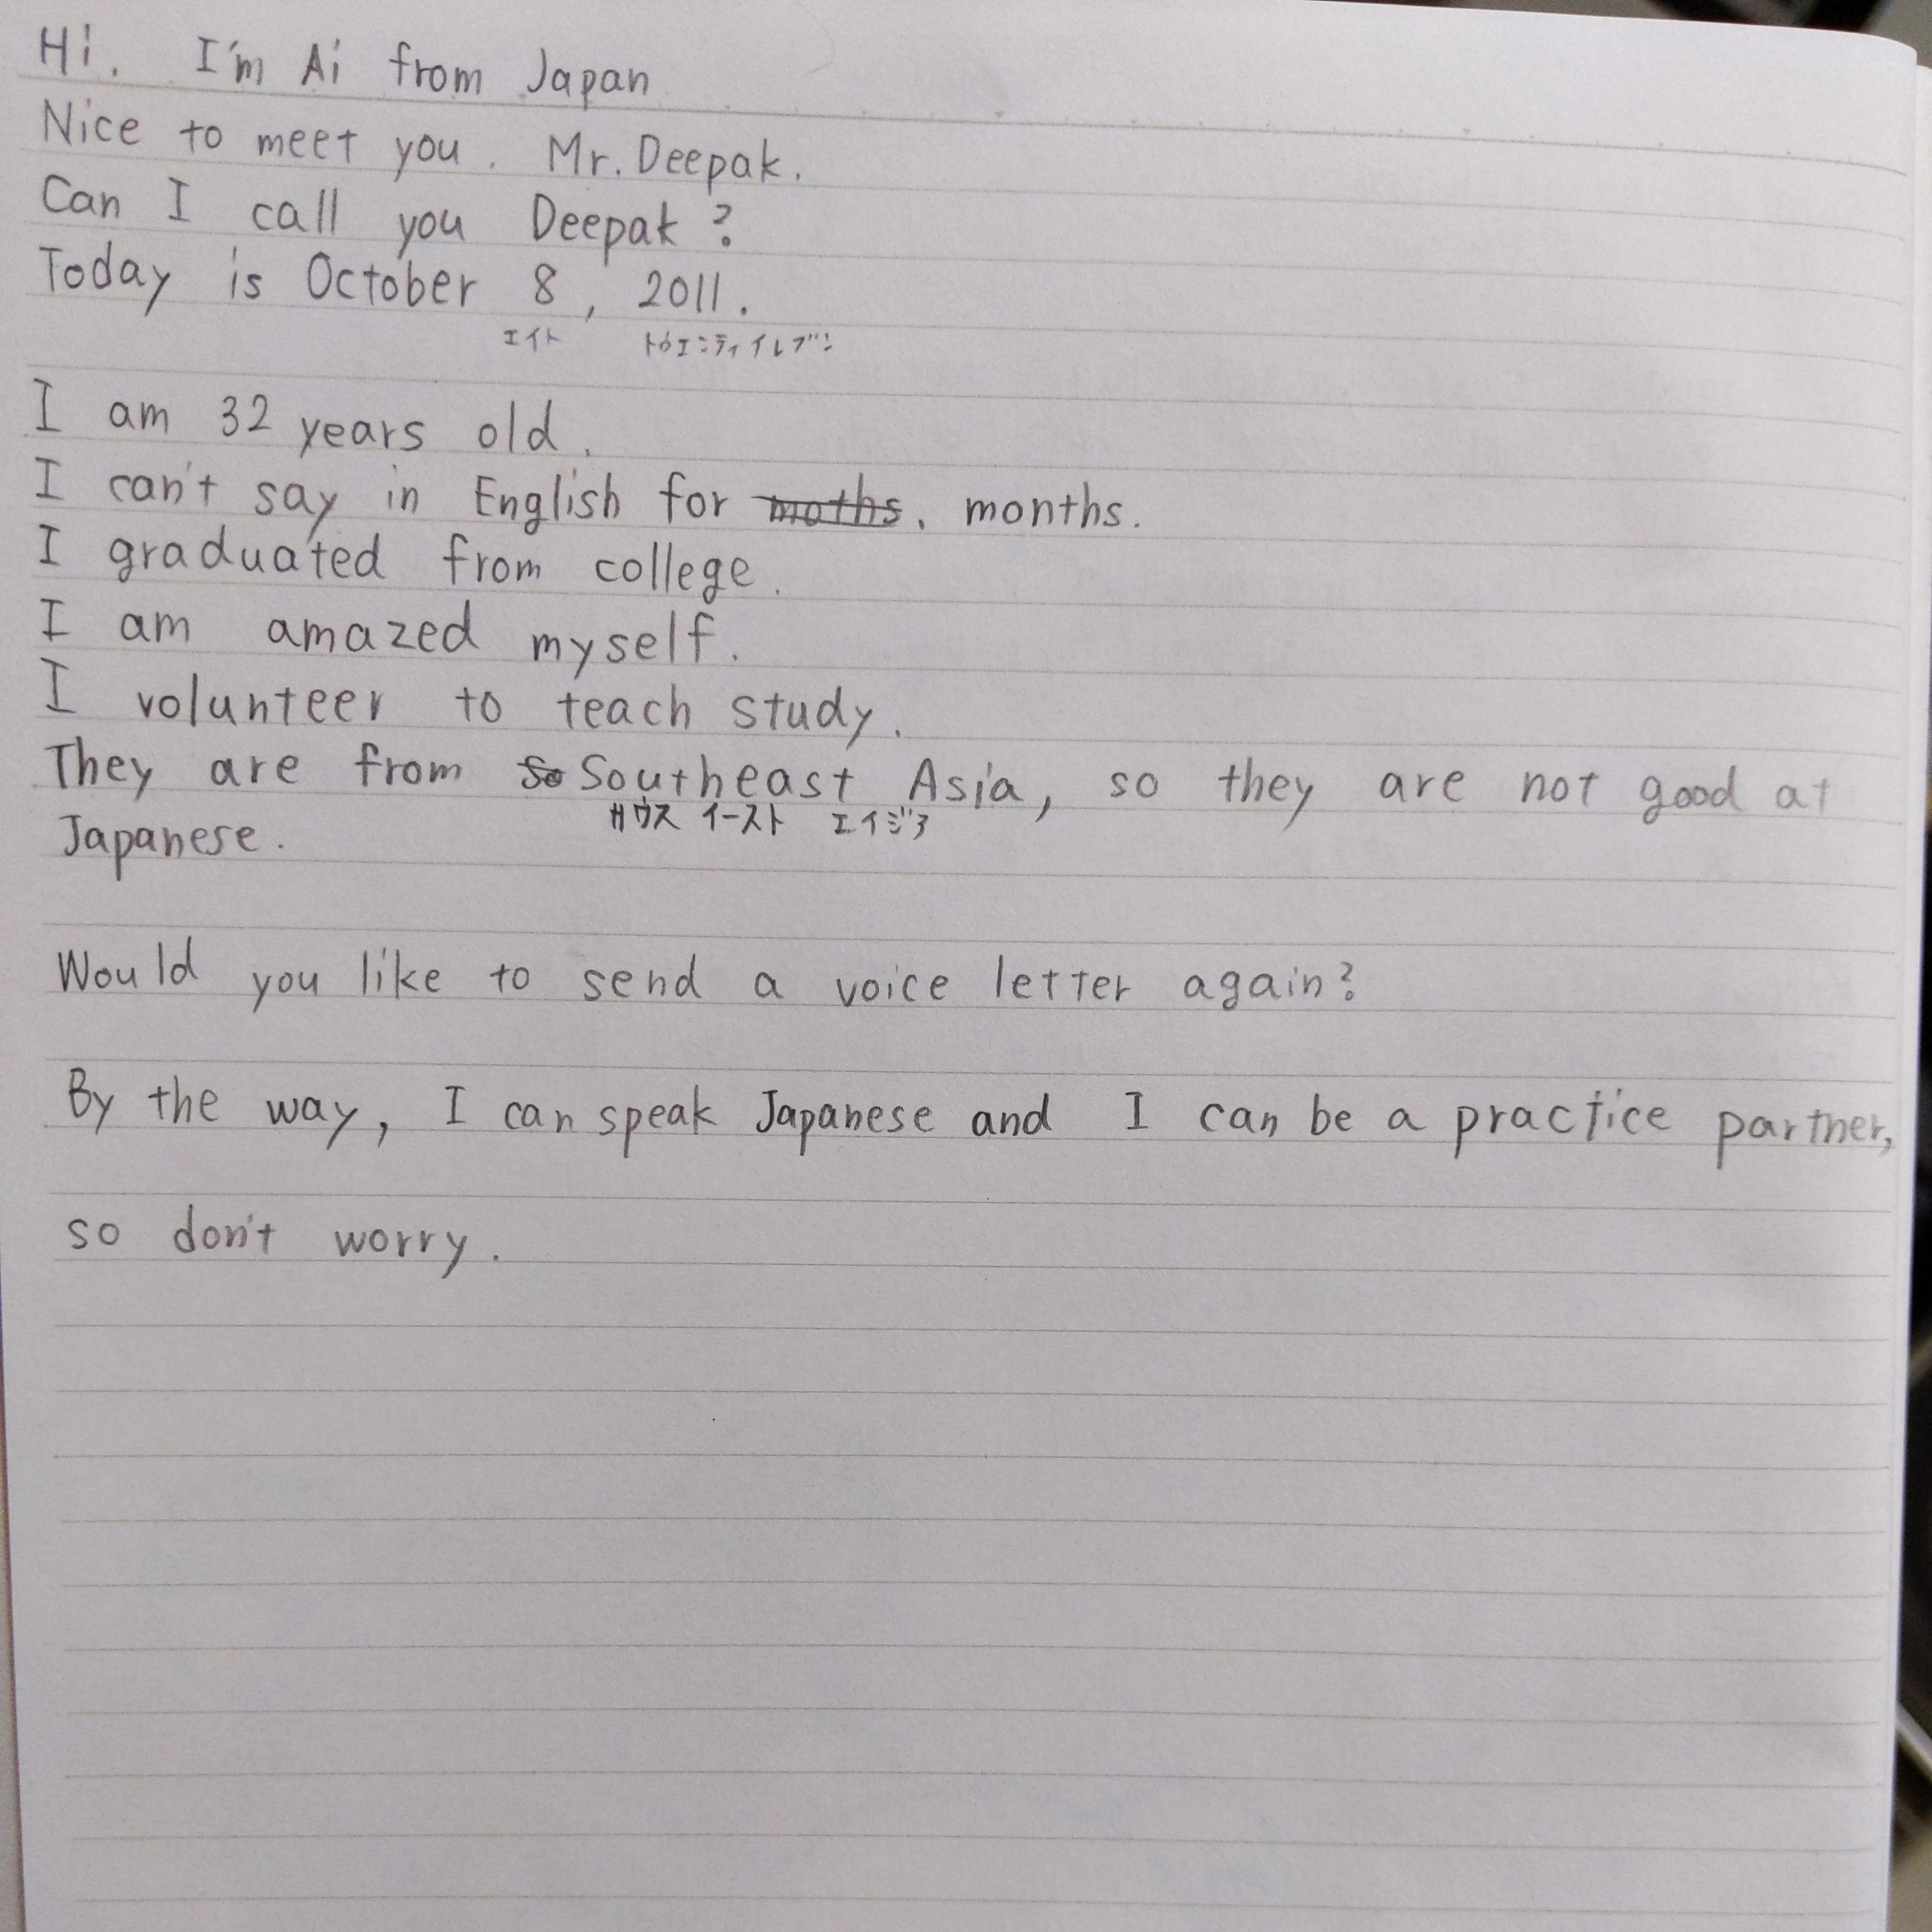 Hi. I'm Ai from Japan
Nice to meet you. Mr. Deepak.
Can I call you Deepak?
Today is October 8, 2011.
エイト トゥエンティイレブン
I am 32 years old.
I can't say in English for moths. months.
I graduated from college.
I am amazed myself.
I volunteer to teach study.
They are from So Southeast Asia, so they are not good at
サウス イースト エイジア
Japanese.
Would you like to send a voice letter again?
By the way, I can speak Japanese and I can be a practice partner,
so don't worry.